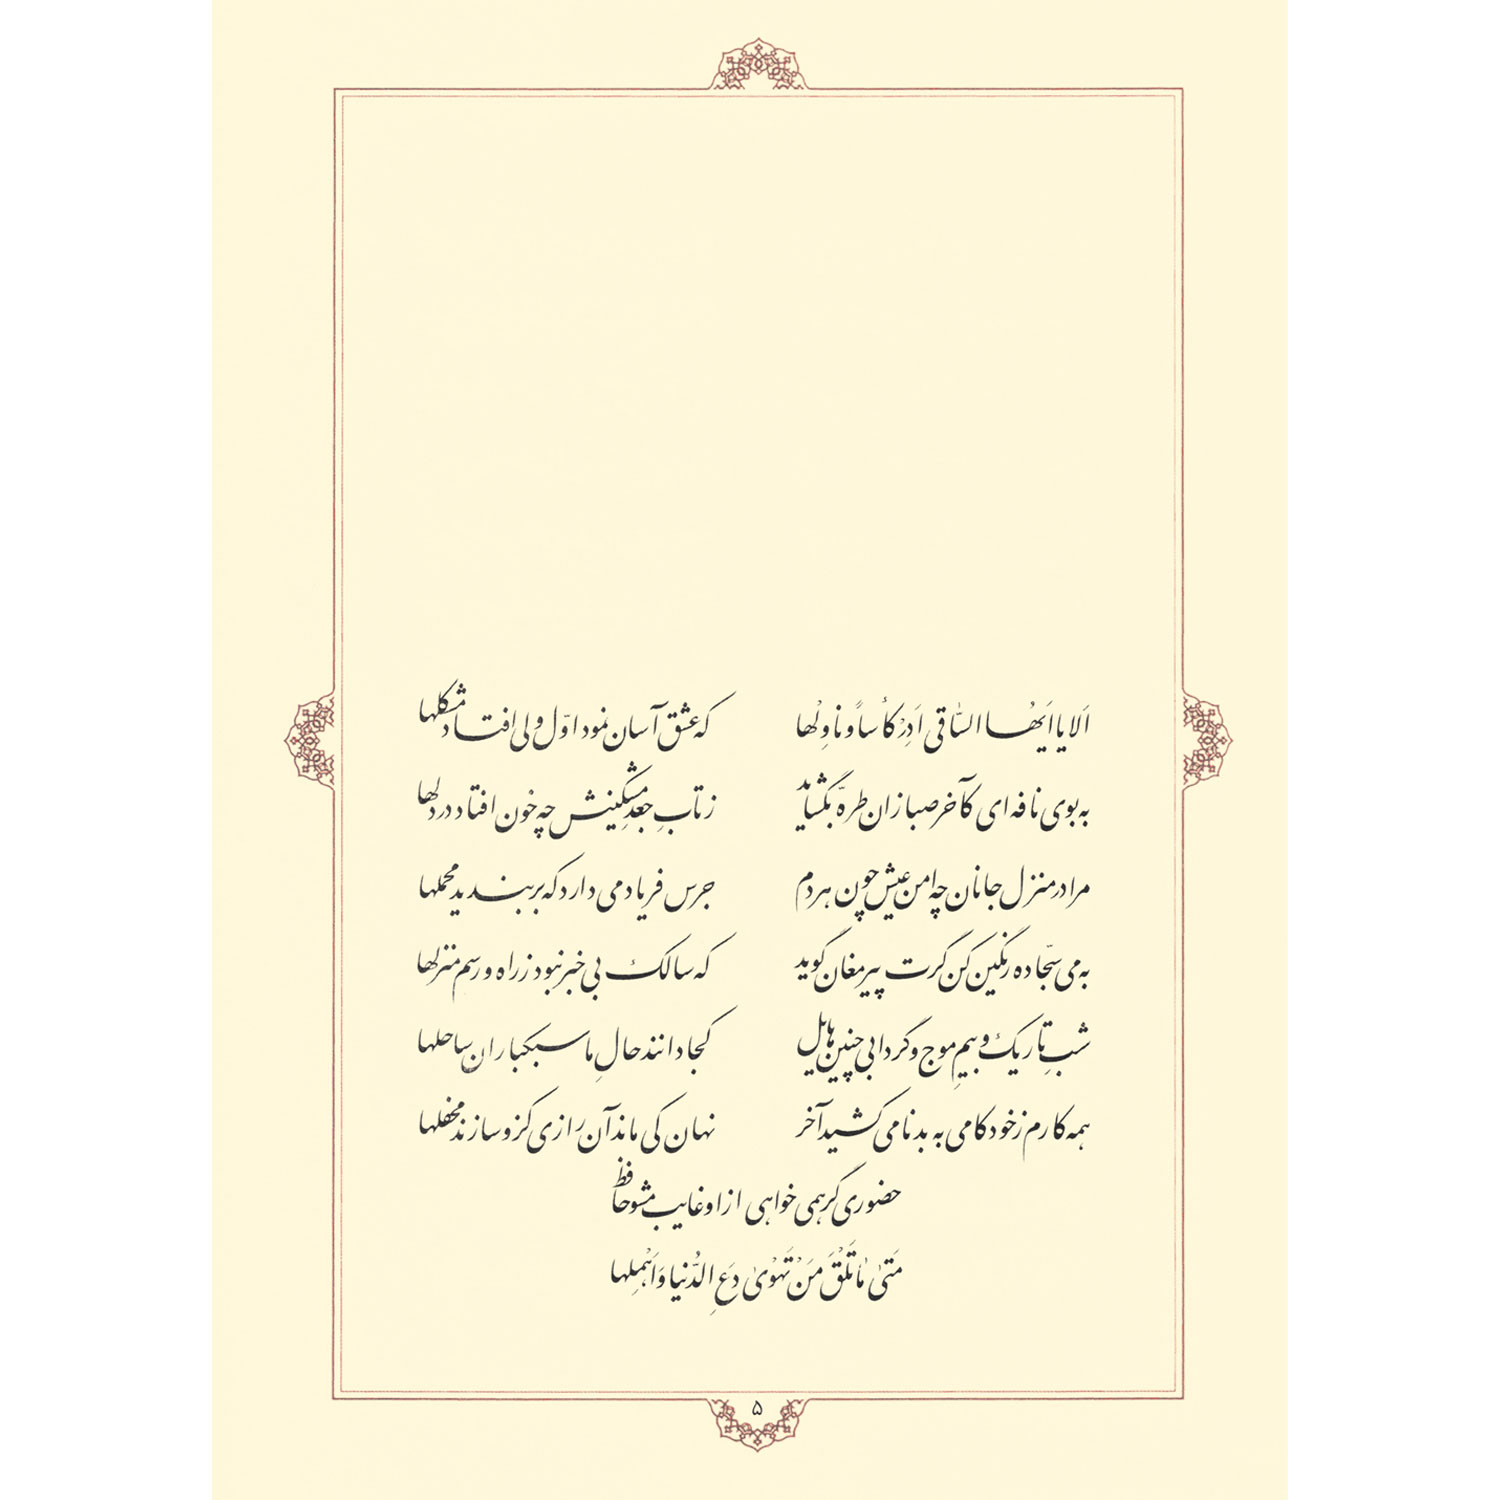 اَلا یا اَیُّهَا السّاقی اَدِرْ کَأساً وَ ناوِلْها که عشق آسان نمود اوّل ولی افتاد مشکلها
به بوی نافه‌ای کآخر صبا زان طرّه بگشاید ز تابِ جعدِ مشکینش چه خون افتاد در دلها
مرا در منزل جانان چه امن عیش چون هر دم جرس فریاد می‌دارد که بربندید محملها
به می سجّاده رنگین کن گرت پیر مغان گوید که سالک بی‌خبر نبود ز راه و رسم منزلها
شبِ تاریک و بیمِ موج و گردابی چنین هایل کجا دانند حالِ ما سبکباران ساحلها
همه کارم ز خود کامی به بدنامی کشید آخر نهان کی ماند آن رازی کزو سازند محفلها
حضوری گر همی خواهی از او غایب مشو حافظ
مَتیٰ مٰا تَلْقَ مَنْ تَهْویٰ دَعِ الدُّنیا وَ اَهْمِلْها
۵